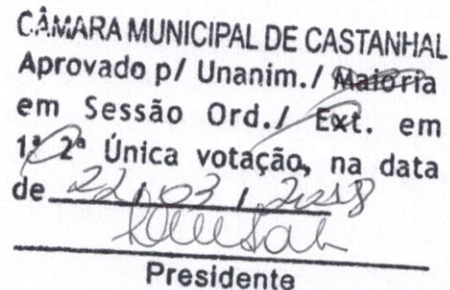 CÂMARA MUNICIPAL DE CASTANHAL
Aprovado p/ Unanim./ Maioria
em Sessão Ord./ Ext. em
1ª 2ª Única votação, na data
de 22 / 03 / 2018
Presidente